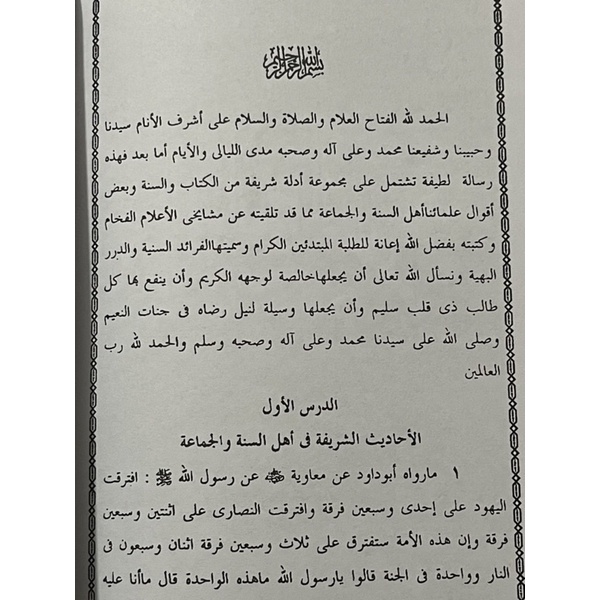 بسم الله الرحمن الرحيم
الحمد لله الفتاح العلام والصلاة والسلام على أشرف الأنام سيدنا
وحبيبنا وشفيعنا محمد وعلى آله وصحبه مدى الليالى والأيام أما بعد فهذه
رسالة لطيفة تشتمل على مجموعة أدلة شريفة من الكتاب والسنة وبعض
أقوال علمائناأهل السنة والجماعة مما قد تلقيته عن مشايخى الأعلام الفخام
وكتبته بفضل الله إعانة للطلبة المبتدئين الكرام وسميتهاالفرائد السنية والدرر
البهية ونسأل الله تعالى أن يجعلهاخالصة لوجهه الكريم وأن ينفع بها كل
طالب ذى قلب سليم وأن يجعلها وسيلة لنيل رضاه فى جنات النعيم
وصلى الله على سيدنا محمد وعلى آله وصحبه وسلم والحمد لله رب
العالمين
الدرس الأول
الأحاديث الشريفة فى أهل السنة والجماعة
١ مارواه أبوداود عن معاوية ﷺ عن رسول الله ﷺ : افترقت
اليهود على إحدى وسبعين فرقة وافترقت النصارى على اثنتين وسبعين
فرقة وإن هذه الأمة ستفترق على ثلاث وسبعين فرقة اثنان وسبعون فى
النار وواحدة فى الجنة قالوا يارسول الله ماهذه الواحدة قال ماأنا عليه